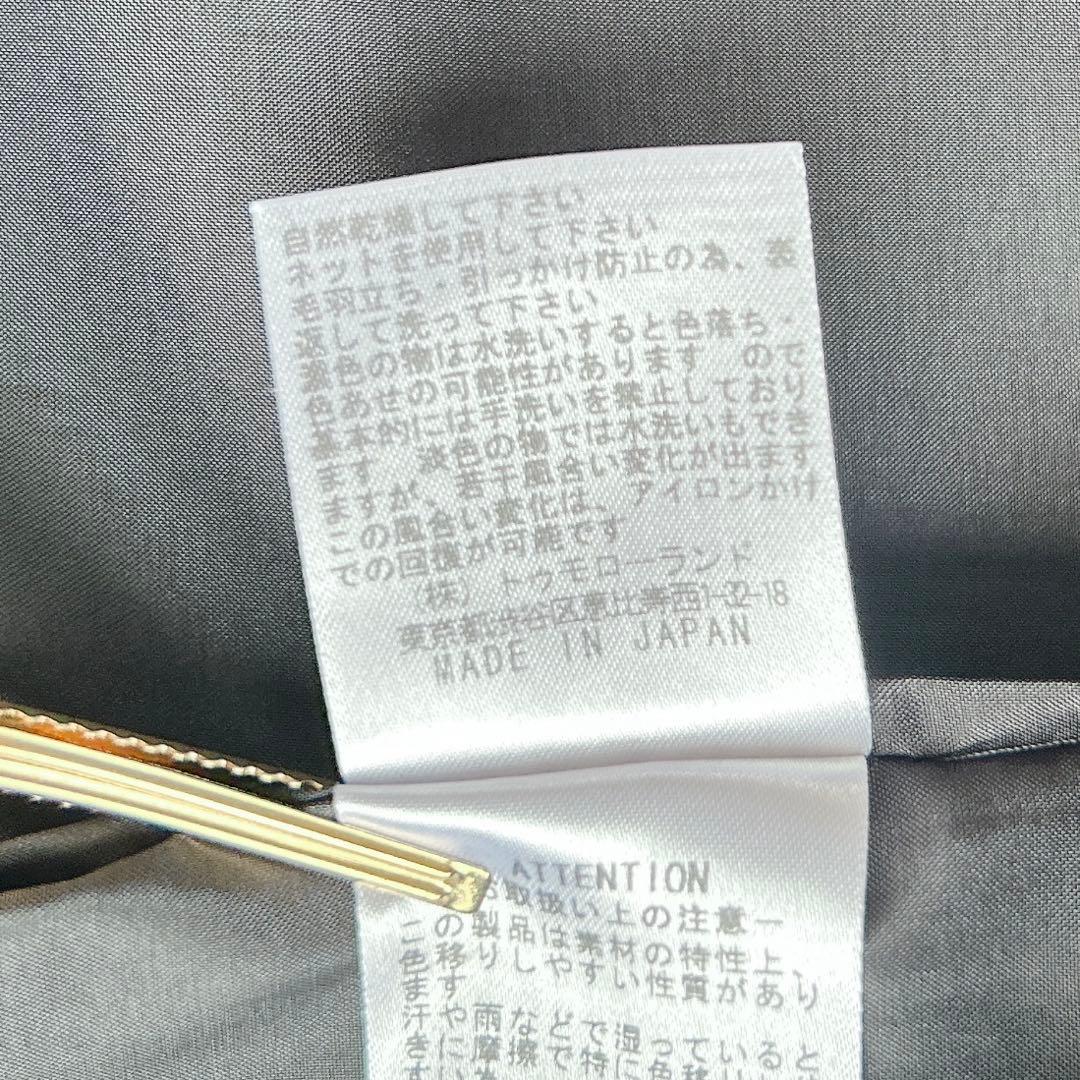 自然乾燥して下さい
ネットを使用して下さい
毛羽立ち・引っかけ防止の為、裏
返して洗って下さい
濃色の物は水洗いすると色落ち・
色あせの可能性があります ので
基本的には芋洗いを禁止しており
ます 淡色の物では水洗いもでき
ますが、若干風合い変化が出ます
この風合い変化は、アイロンかけ
での回復が可能です
(株)トゥモローランド
東京都渋谷区恵比寿西1-32-18
MADE IN JAPAN
ATTENTION
お取扱い上の注意
この製品は素材の特性上、
色移りしやすい性質があり
ます
汗や雨などで湿っている